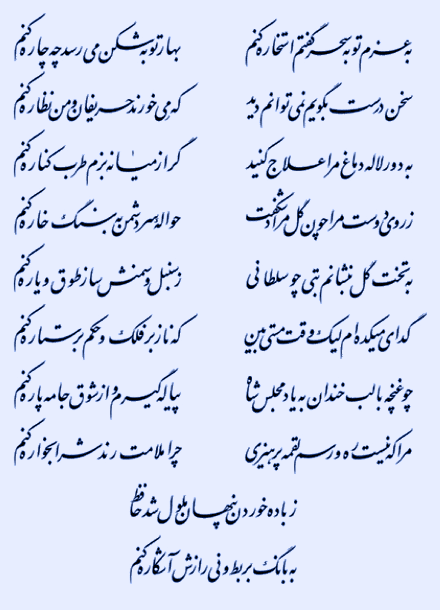 به عزم توبه سحر گفتم استخاره کنم بهار توبه شکن می رسد چه چاره کنم
سخن درست بگویم نمی توانم دید که می خورند حریفان و من نظاره کنم
به دور لاله دماغ مرا علاج کنید گر از میانه بزم طرب کناره کنم
ز روی دوست مرا چون گل مراد شکفت حواله سر دشمن به سنگ خاره کنم
به تخت گل بنشانم بتی چو سلطانی ز سنبل و سمنش ساز طوق و یاره کنم
گدای میکده ام لیک وقت مستی بین که ناز بر فلک و حکم بر ستاره کنم
چو غنچه با لب خندان به یاد مجلس شاه پیاله گیرم و از شوق جامه پاره کنم
مرا که نیست ره و رسم لقمه پرهیزی چرا ملامت رند شرابخواره کنم
ز باده خوردن پنهان ملول شد حافظ
به بانگ بربط و نی رازش آشکاره کنم